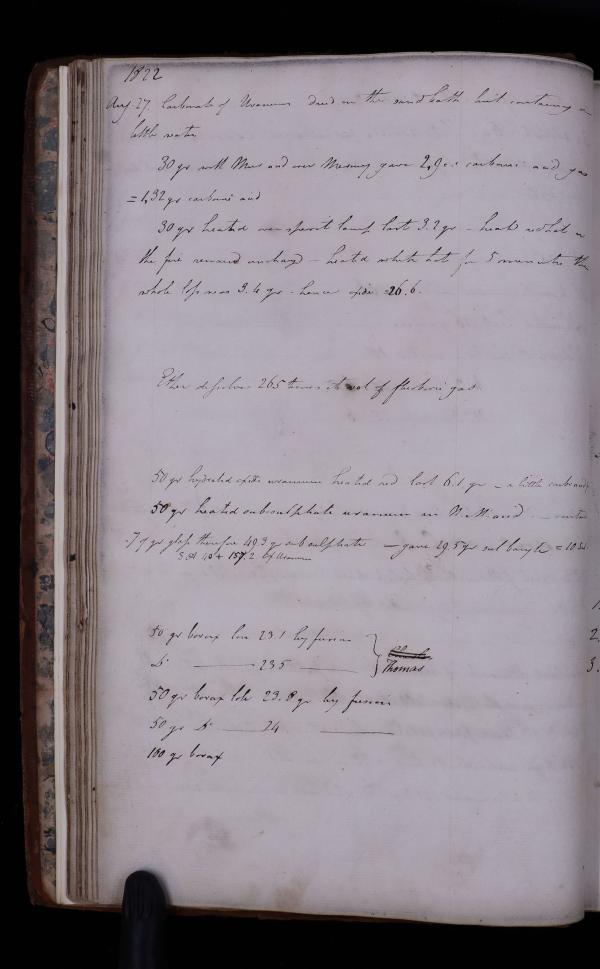 1822
Aug. 27. Carbonate of Uranium dried on the sand bath but containing a
little water
30 gr with Mur and over Mercury gave 2,9 c.i carbonic acid gas
= 1,32 gr carbonic acid
30 gr heated over spirit lamp lost 3.2 gr - heated in
the fire remained unchanged - heated white hot for 5 minutes the
whole loss was 3.4 gr - hence oxide 26.6
Ether dissolves 265 times its vol of gas
50 gr hydrated oxide uranium heated red lost 6.1 gr - a little carb acid
50 gr heated subsulphate uranium in N. M. acid
.7 of gr glass therefore 49.3 gr sub sulphate - gave 29.5 gr sul baryta = 10 S.A
S.A 40 + 157.2 Ox Uranium
50 gr borax lose 23.1 by fusion
Do 23.5
Thomas
50 gr borax lose 23.8 gr by fusion
50 gr Do 24
100 gr borax
2
3